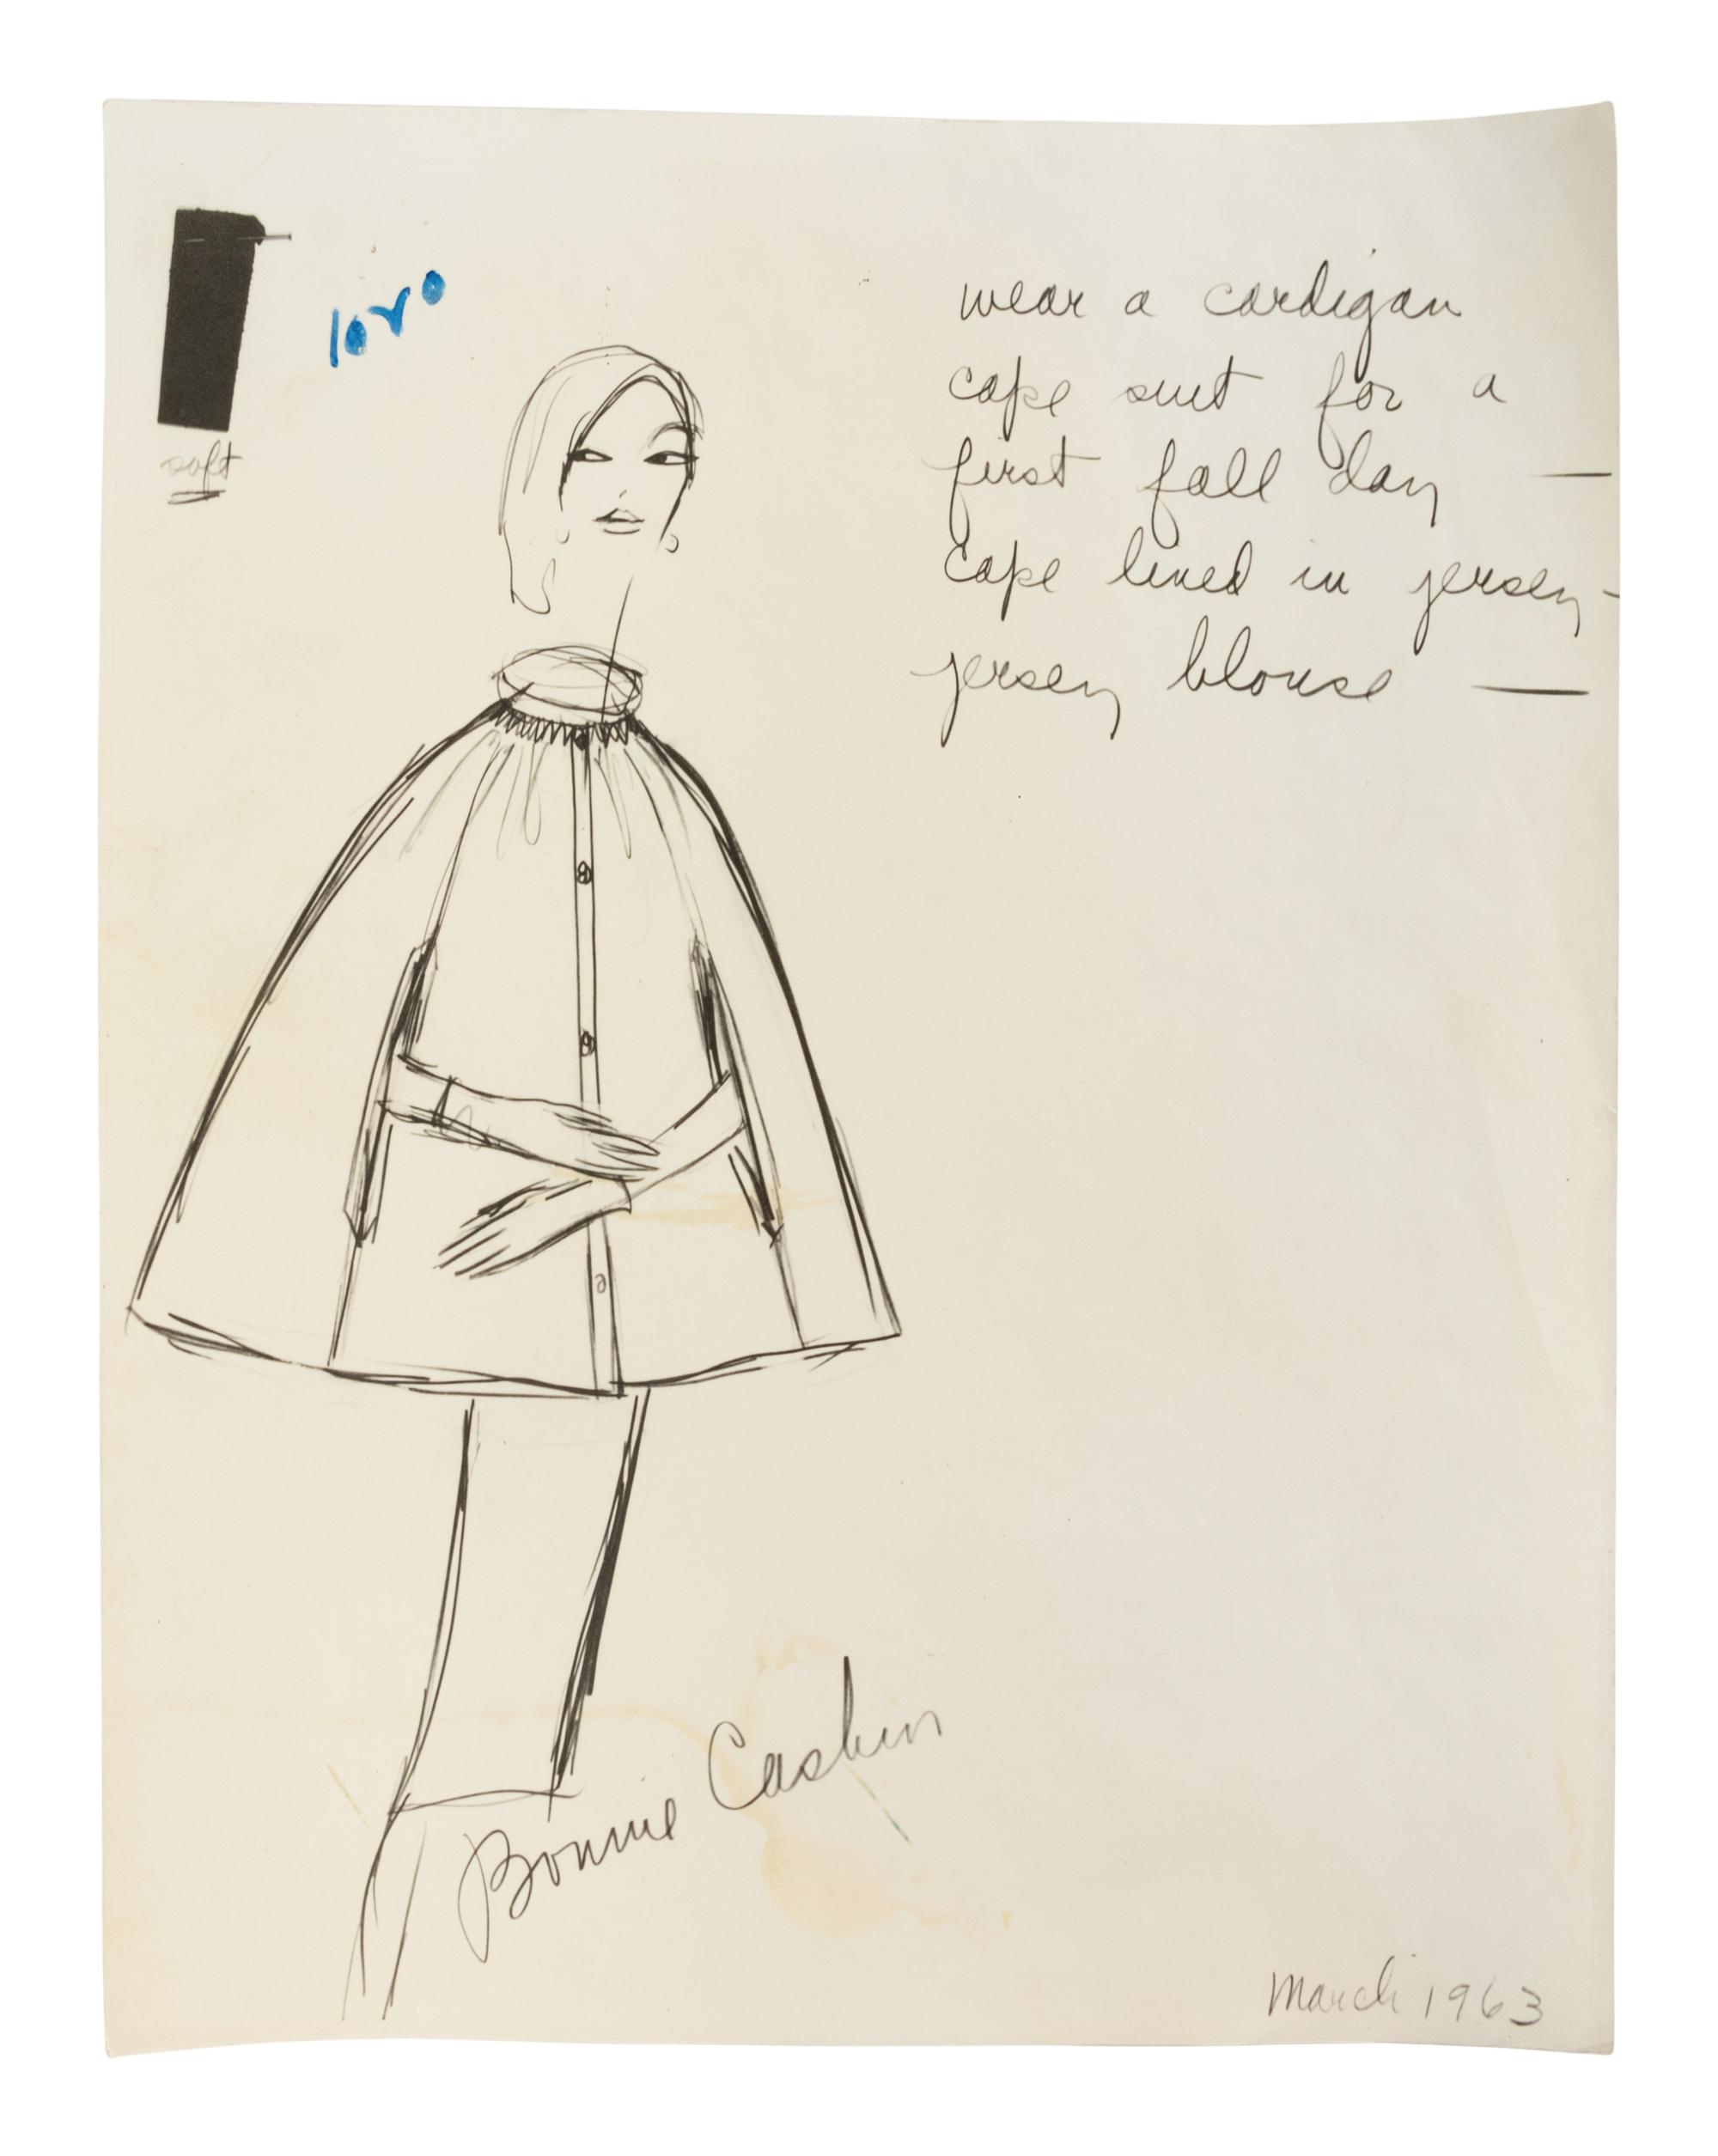 soft
wear a cardigan
cape suit for a
first fall day —
cape lined in jersey -
jersey blouse —
Bonnie Cashin
March 1963